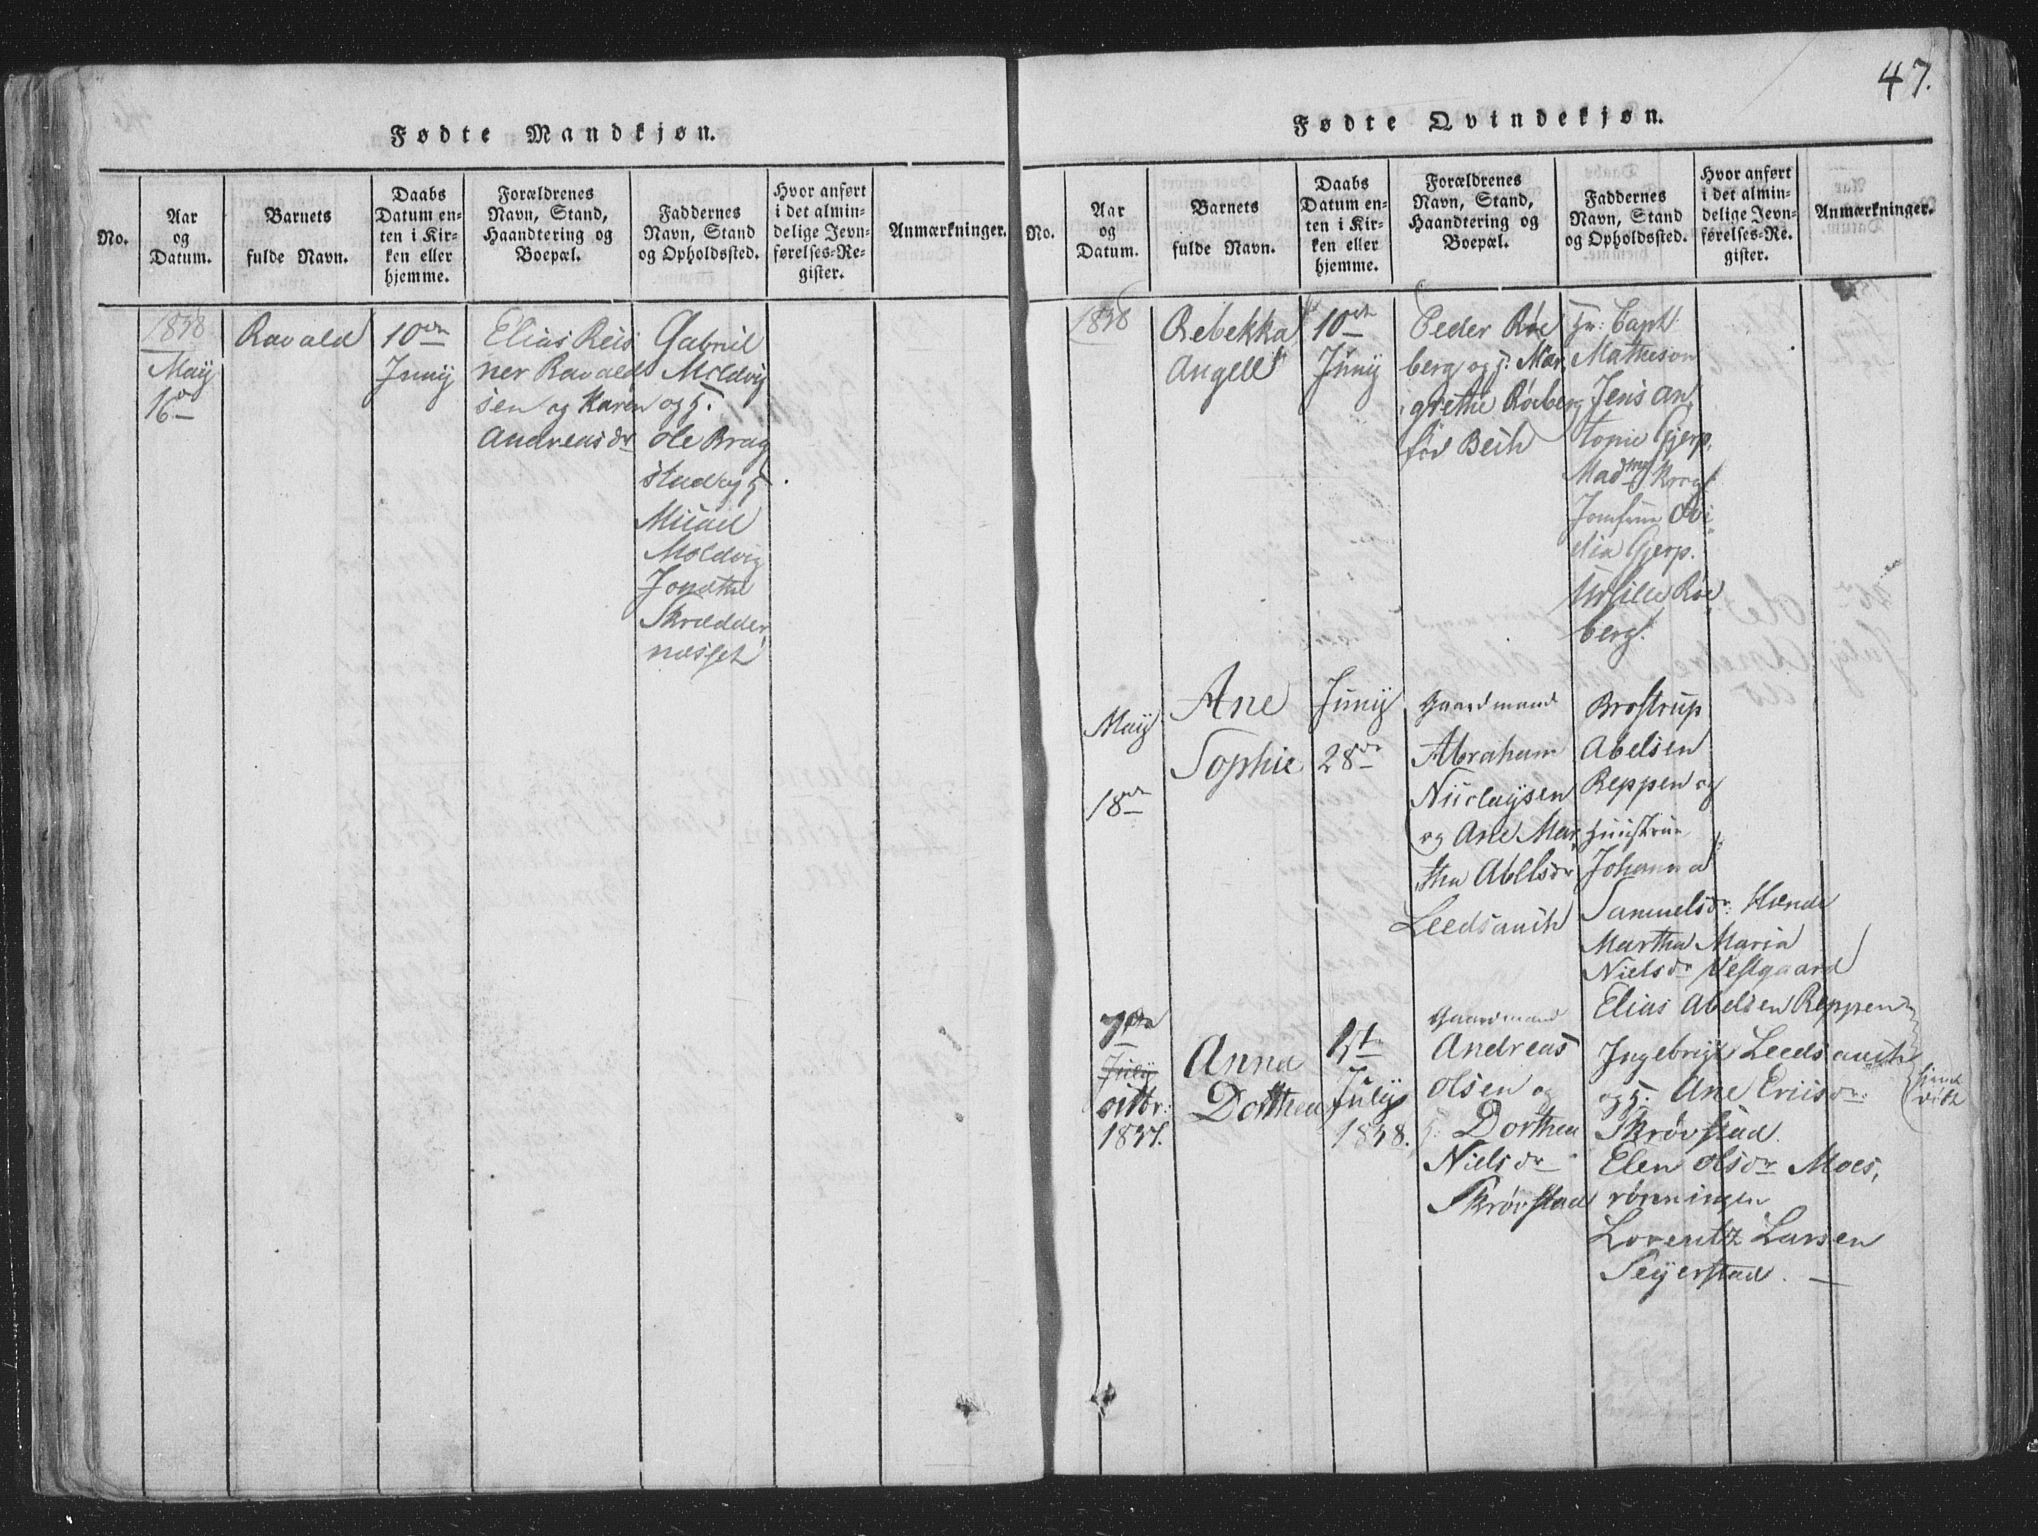 47.
Fødte Mandkjøn.
No.
Aar
og
Datum.
Barnets
fulde Navn.
Daabs
Datum en-
ten i Kir-
ken eller
hjemme.
Forældrenes
Navn, Stand,
Haandtering og
Boepæl.
Faddernes
Navn, Stand
og Opholdssted.
Hvor anført
i det almin-
delige Jevn-
førelses-Re-
gister.
Anmærkninger.
1838
May
16de
Ravald
10de
Juny
Elias Reis
ner Ravald
sen og Karen
Andreasdr
Gabriel
Moldvig
og h.
Ole Brag
stad og h
Micael
Moldvig
Jonetha
Skrædder
næsset
Fødte Qvindekjøn.
No.
Aar
og
Datum.
Barnets
fulde Navn.
Daabs
Datum en-
ten i Kir-
ken eller
hjemme.
Forældrenes
Navn, Stand,
Haandtering og
Boepæl.
Faddernes
Navn, Stand
og Opholdssted.
Hvor anført
i det almin-
delige Jevn-
førelses-Re-
gister.
Anmærkninger.
1838
Rebekka
Angell
10de
Juny
Peder Røe
berg og h: Mar
grethe Røeberg
fød Bech
Hr: Capt
Matheson
Jens An
tonie Gjerp,
Madme Krog
Jomfrue Ovi
dia Gjerp.
Ursille Røe
berg.
May
18de
Ane
Sophie
Juny
28de
Gaardmand
Abraham
Nicolaysen
og Ane Mar
tha Abelsdr
Leedsauch
Brostrup
Abelsen
Reppen og
Huustrue
Johanna
Samuelsdr: Hænde
Martha Maria
Nielsdr Vestgaard
Elias Abelsen Reppen
7de
July
Octbr:
1837.
Anna
Dorthea
1ste
July
1838.
Gaardmand
Andreas
Olsen og
h: Dorthea
Nielsdr
Skrøvstad
Ingebrigt Leedsauch
og h: Ane Ericsdr:
Skrøvstad.
Elen Olsdr Moes,
rønningen
Lorentz Larsen
Seyerstad. —